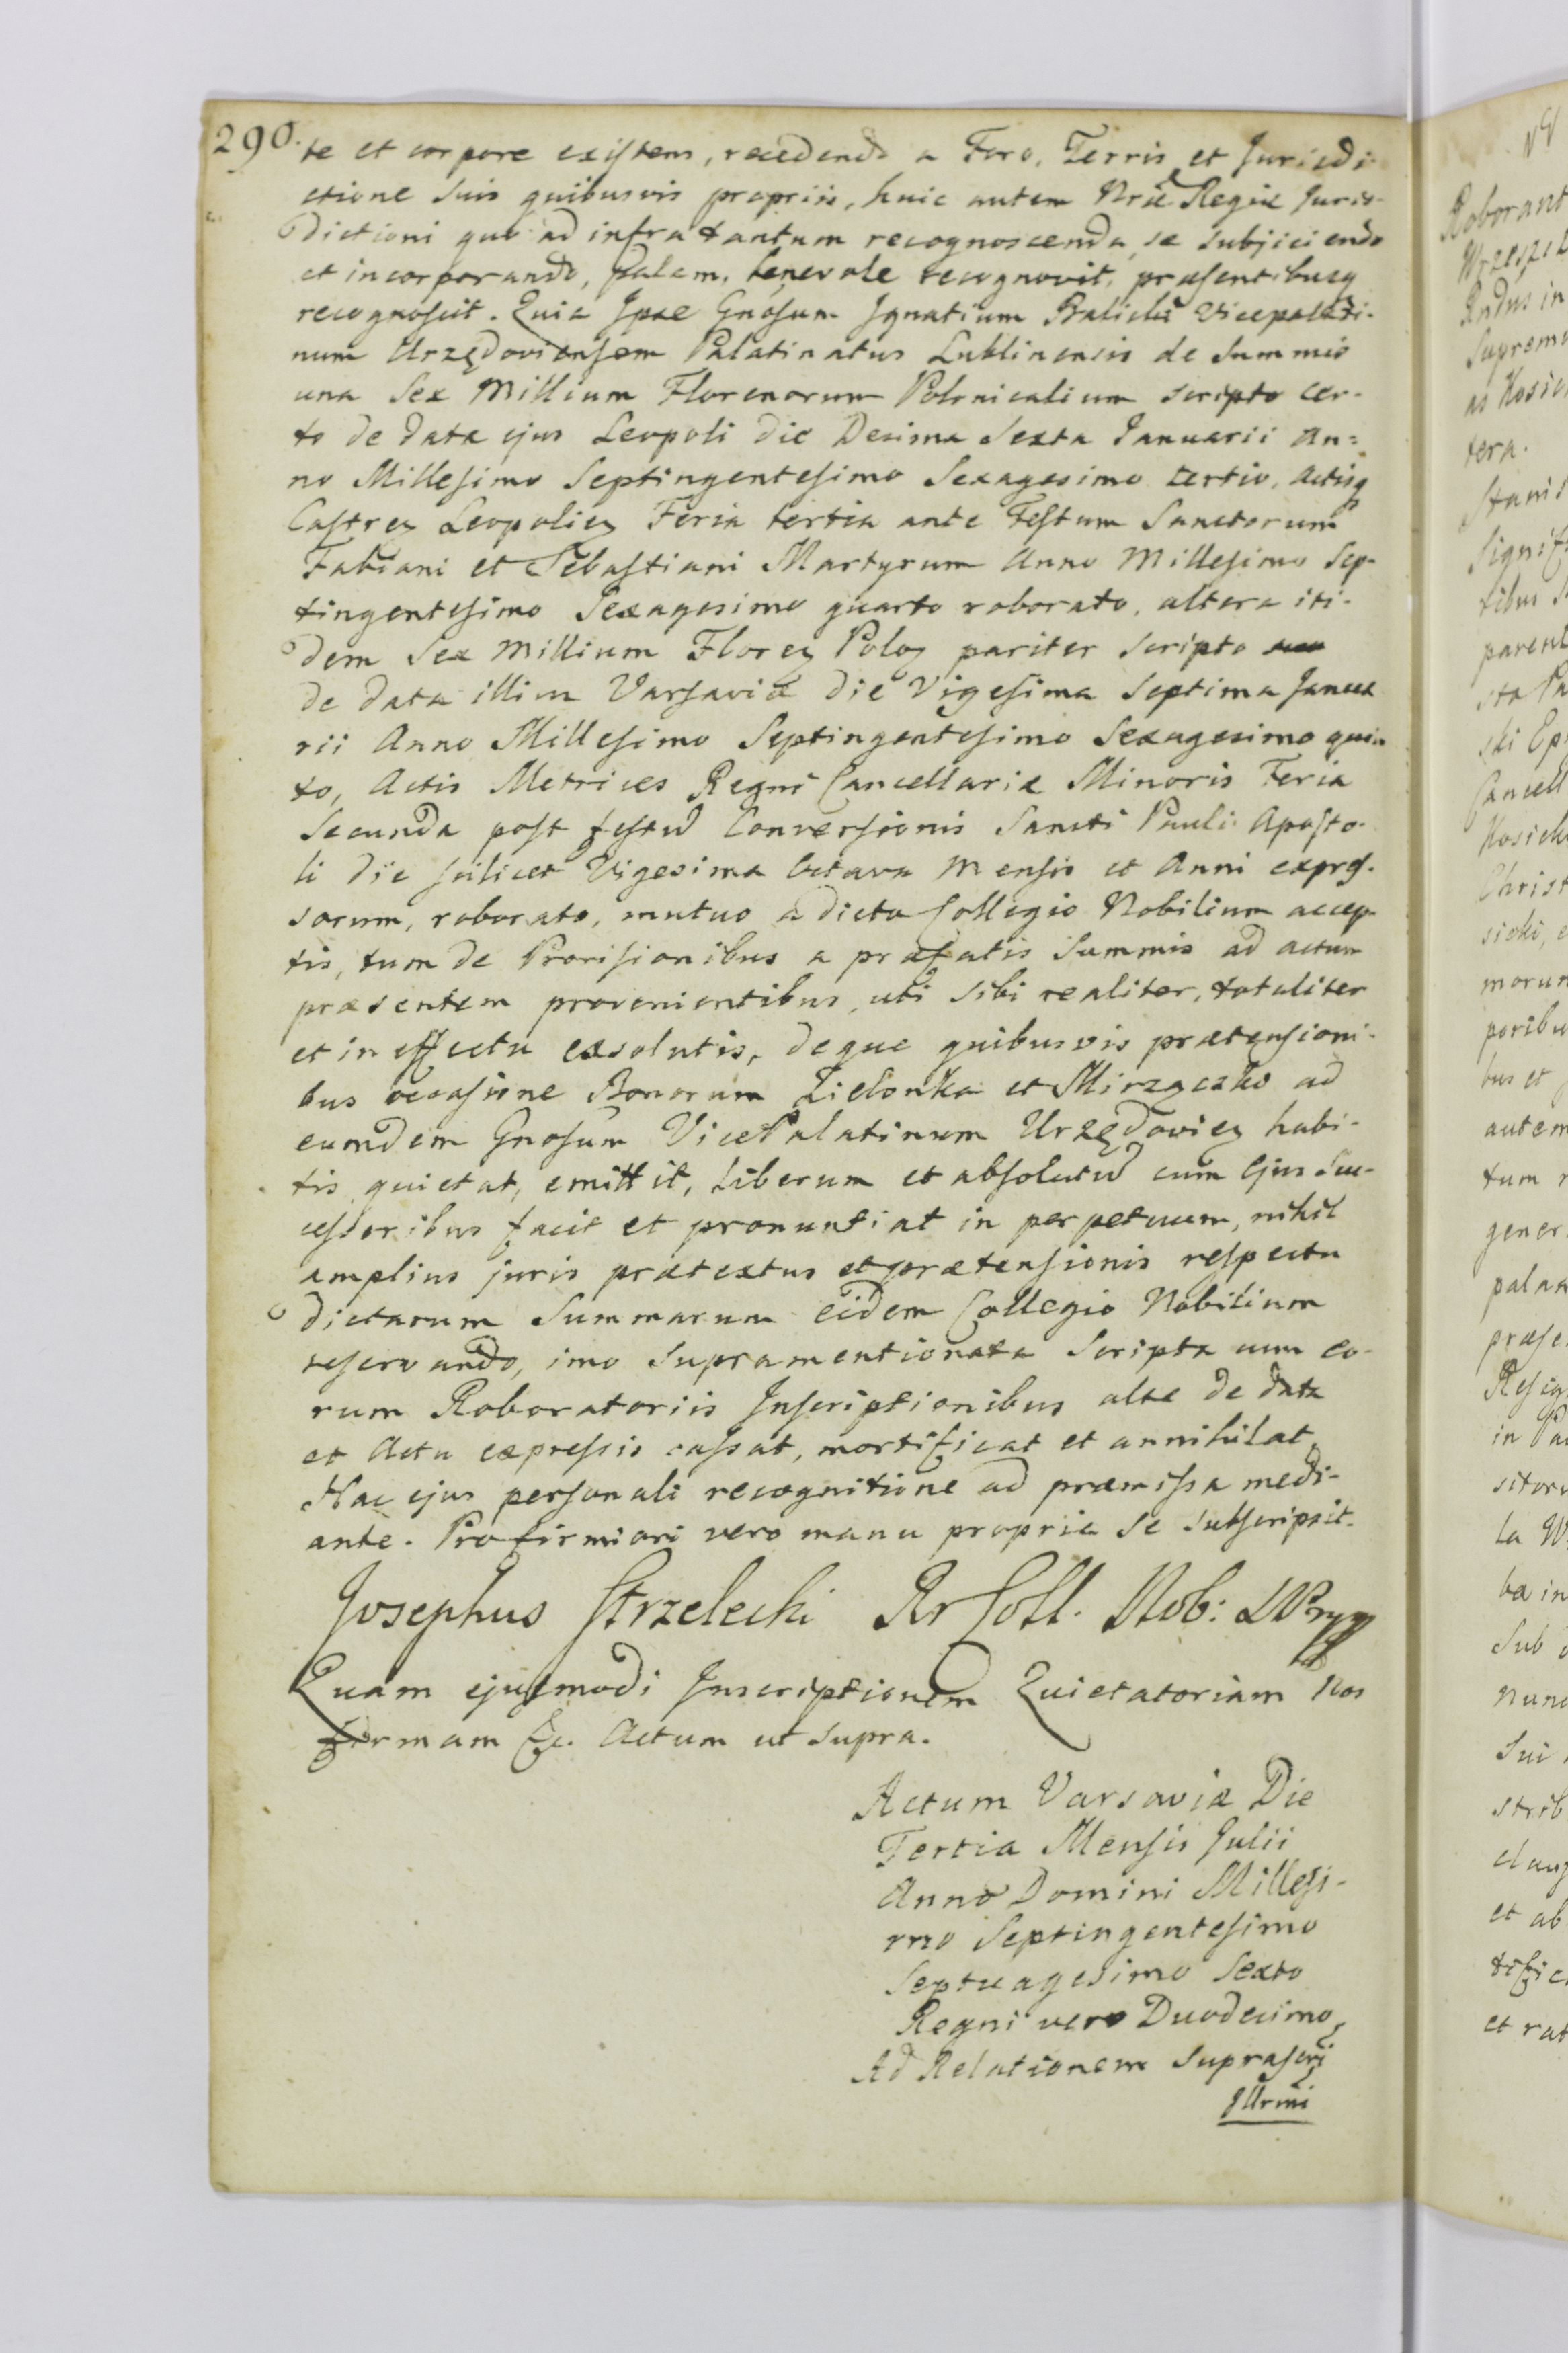 290.
te et corpore existens, recedendo a Foro, Terris et Jurisdi-
ctione suis quibusvis propriis, huic autem Nrae Regiae Juris-
dictioni quo ad infra tantum recognoscenda se subjiciendo
et incorporando, palam, benevole recognovit, praesentibusq
recognoscit. Quia Ipse Gnosum Ignatium Vicepalati-
num Urzędoviensem Palatinatus Lublinensis de Summis
una Sex Millium Florenorum Polonicalium scripto cer-
to de data ejus Leopoli die Decima Sexta Januarii an=
no Millesimo Septingentesimo Sexagesimo tertio, Actisq
Castren Leopolien Feria tertia ante Festum Sanctorum
Fabiani et Sebastiani Martyrum Anno Millesimo Sep-
tingentesimo Sexagesimo quarto roborato, altera iti-
dem Sex Millium Floren Polon pariter scripto
de data illius Varsaviae die Vigesima Septima Janua
rii Anno Millesimo Septingentesimo Sexagesimo quin
to, Actis Metrices Regni Cancellariae Minoris Feria
Secunda post festum Conversionis Sancti Pauli Aposto-
li die scilicet Vigesima Octava Mensis et Anni expres-
sorum, roborato, mutuo a dicto Collegio Nobilium accep-
tis, tum de Provisionibus a praefatis Summis ad actum
praesentem provenientibus, uti sibi realiter, totaliter
et in effectu exsolutis, deque quibusvis praetensioni-
bus occasione Bonorum Zielonka et ad
eumdem Gnosum VicePalatinum Urzędovien habi-
tis quietat, emittit, liberum et absolutum cum ejus Suc-
cessoribus facit et pronuntiat in perpetuum, nihil
amplius juris praetextus et praetensionis respectu
dictarum Summarum eidem Collegio Nobilium
reservando, imo supramentionata Scripta cum eo-
rum Roboratoriis Inscriptionibus alte de data
et Actu expressis cassat, mortificat et annihilat,
Hac ejus personali recognitione ad praemissa medi-
ante. Pro firmiori vero manu propria se subscripsit.
Josephus Strzelecki Rr Coll. Nob:
Quam ejusmodi Inscriptionem Quietatoriam Nos
formam &c. Actum ut supra.
Actum Varsaviae Die
Tertia Mensis Julii
Anno Domini Millesi-
mo Septingentesimo
Septuagesimo Sexto
Regni vero Duodecimo
Ad Relationem suprascri
Illrmi